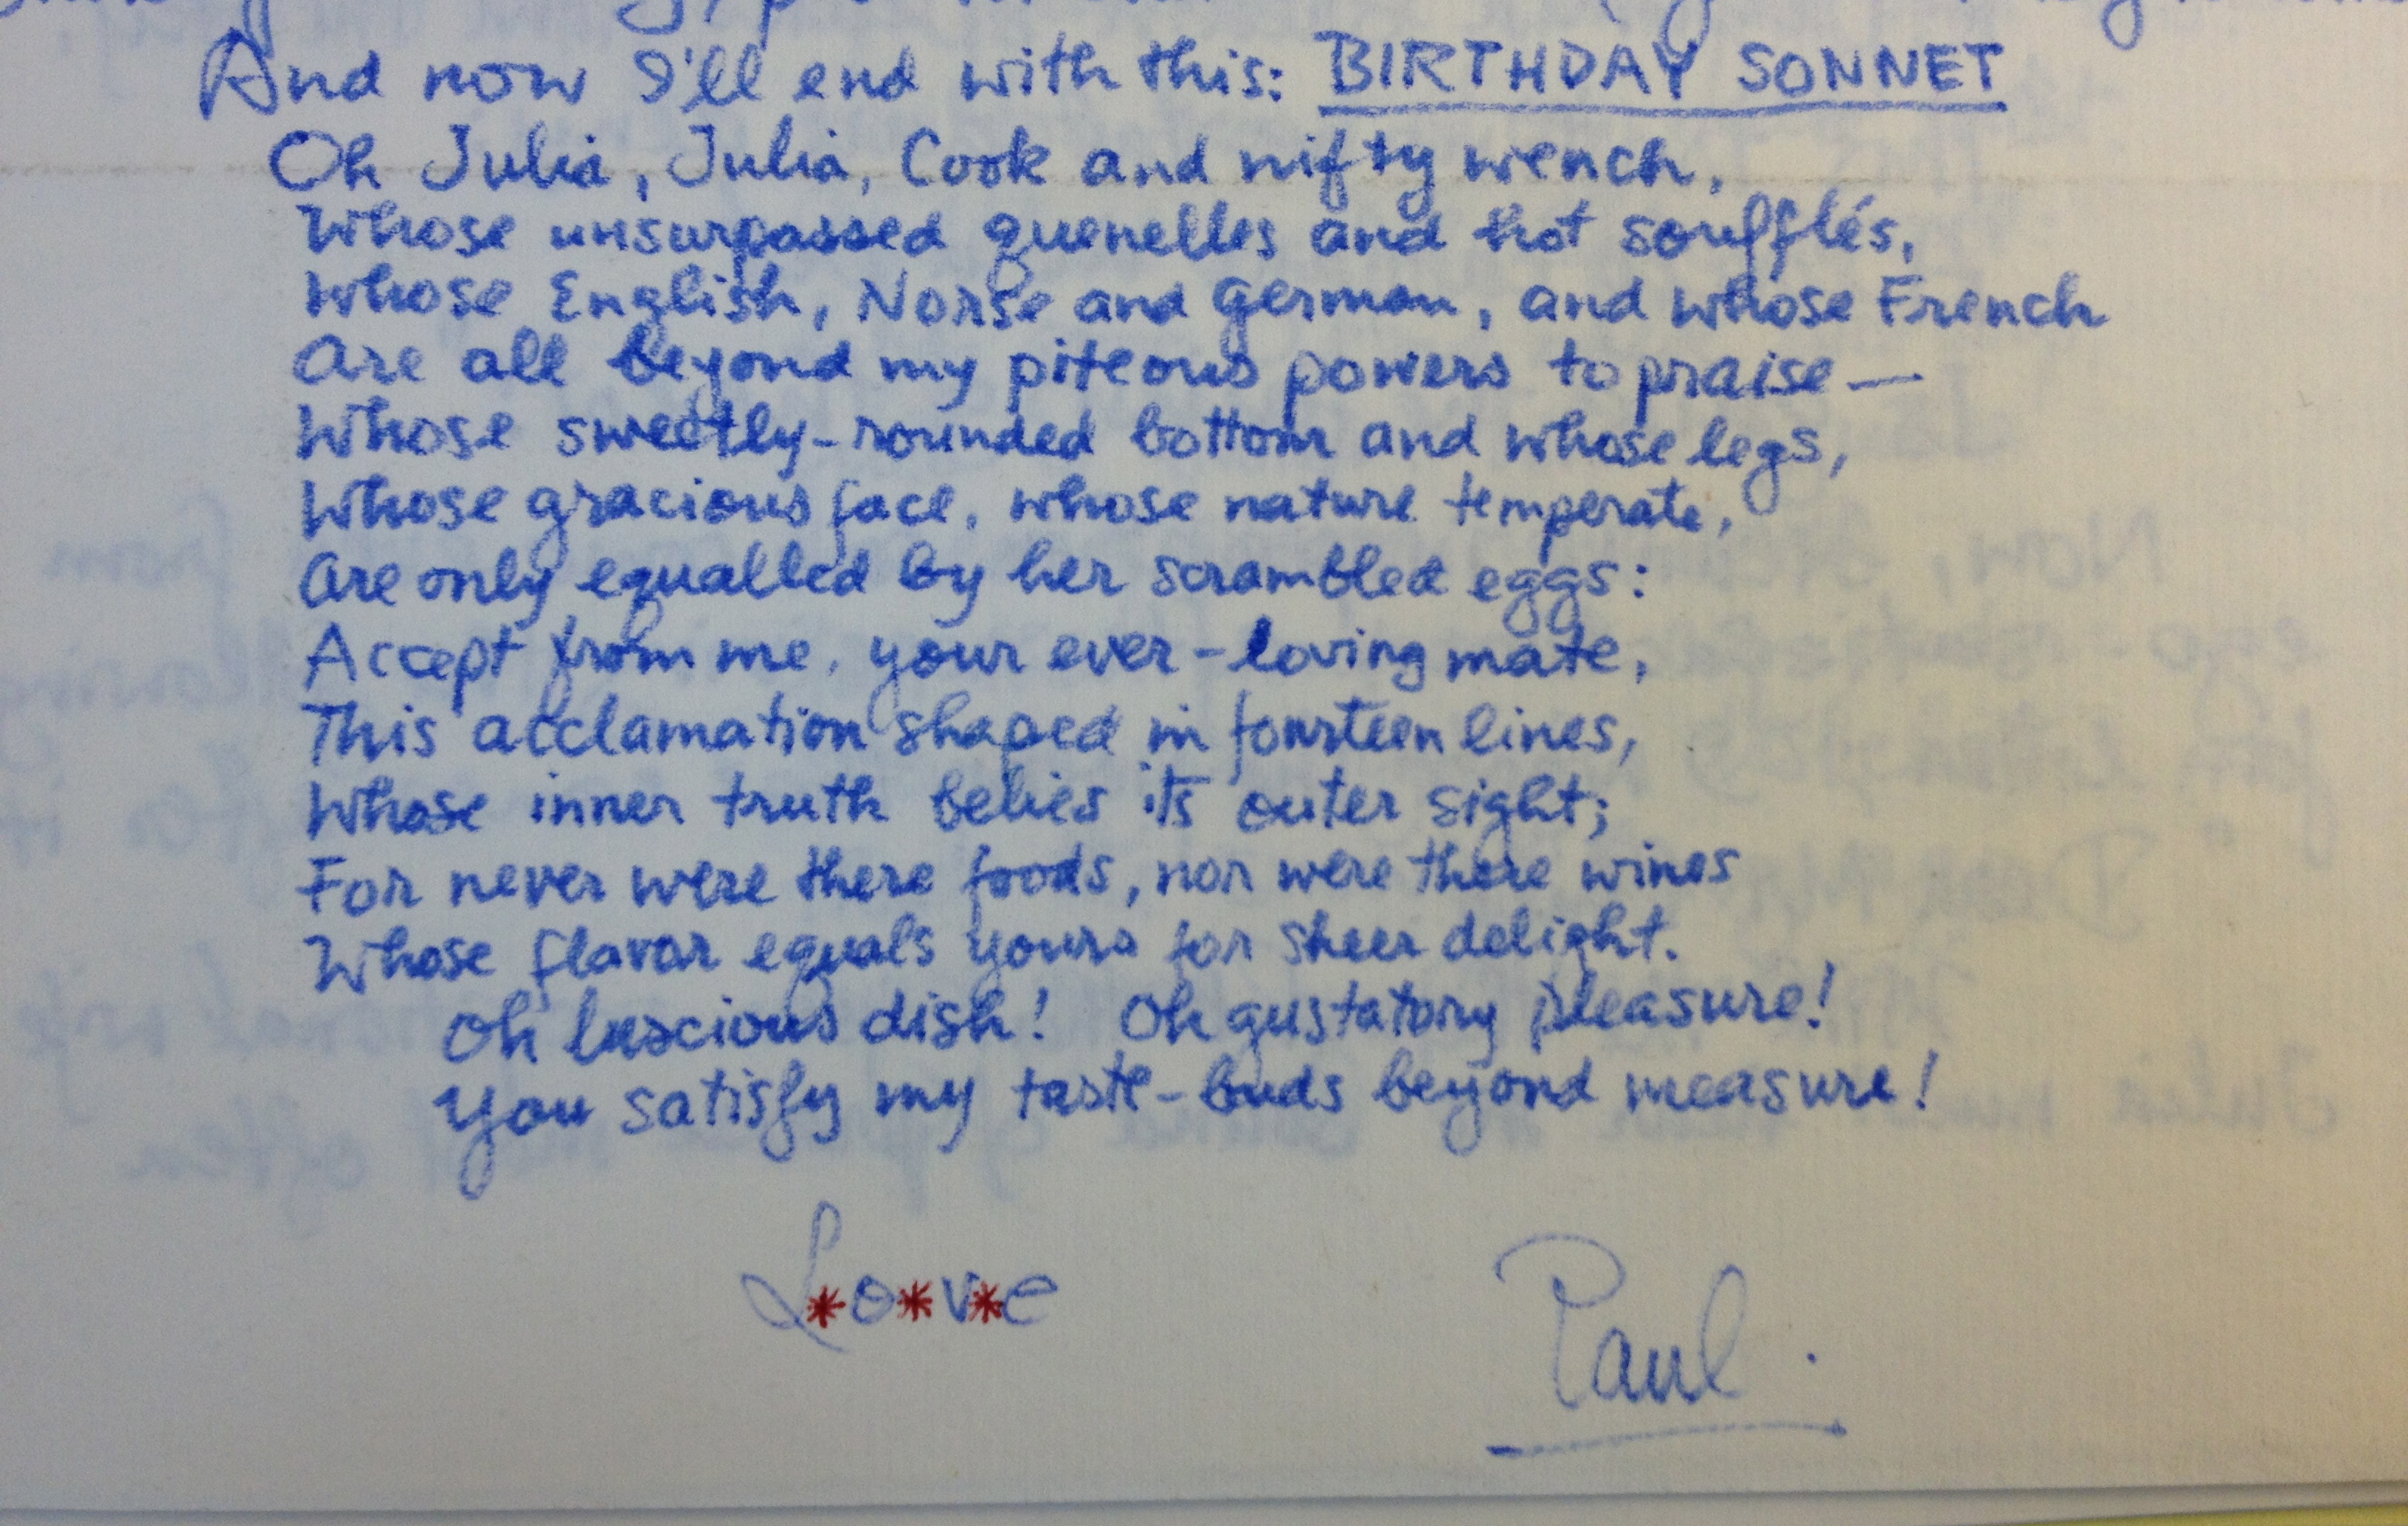 And now I'll end with this: BIRTHDAY SONNET
Oh Julia, Julia, Cook and nifty wench,
Whose unsurpassed quenelles and hot soufflés,
Whose English, Norse and German, and whose French
Are all beyond my piteous powers to praise—
Whose sweetly-rounded bottom and whose legs,
Whose gracious face, whose nature temperate,
Are only equalled by her scrambled eggs:
Accept from me, your ever-loving mate,
This acclamation shaped in fourteen lines,
Whose inner truth belies its outer sight;
For never were there foods, nor were there wines
Whose flavor equals yours for sheer delight.
Oh luscious dish! Oh gustatory pleasure!
You satisfy my taste-buds beyond measure!
L*o*v*e Paul.